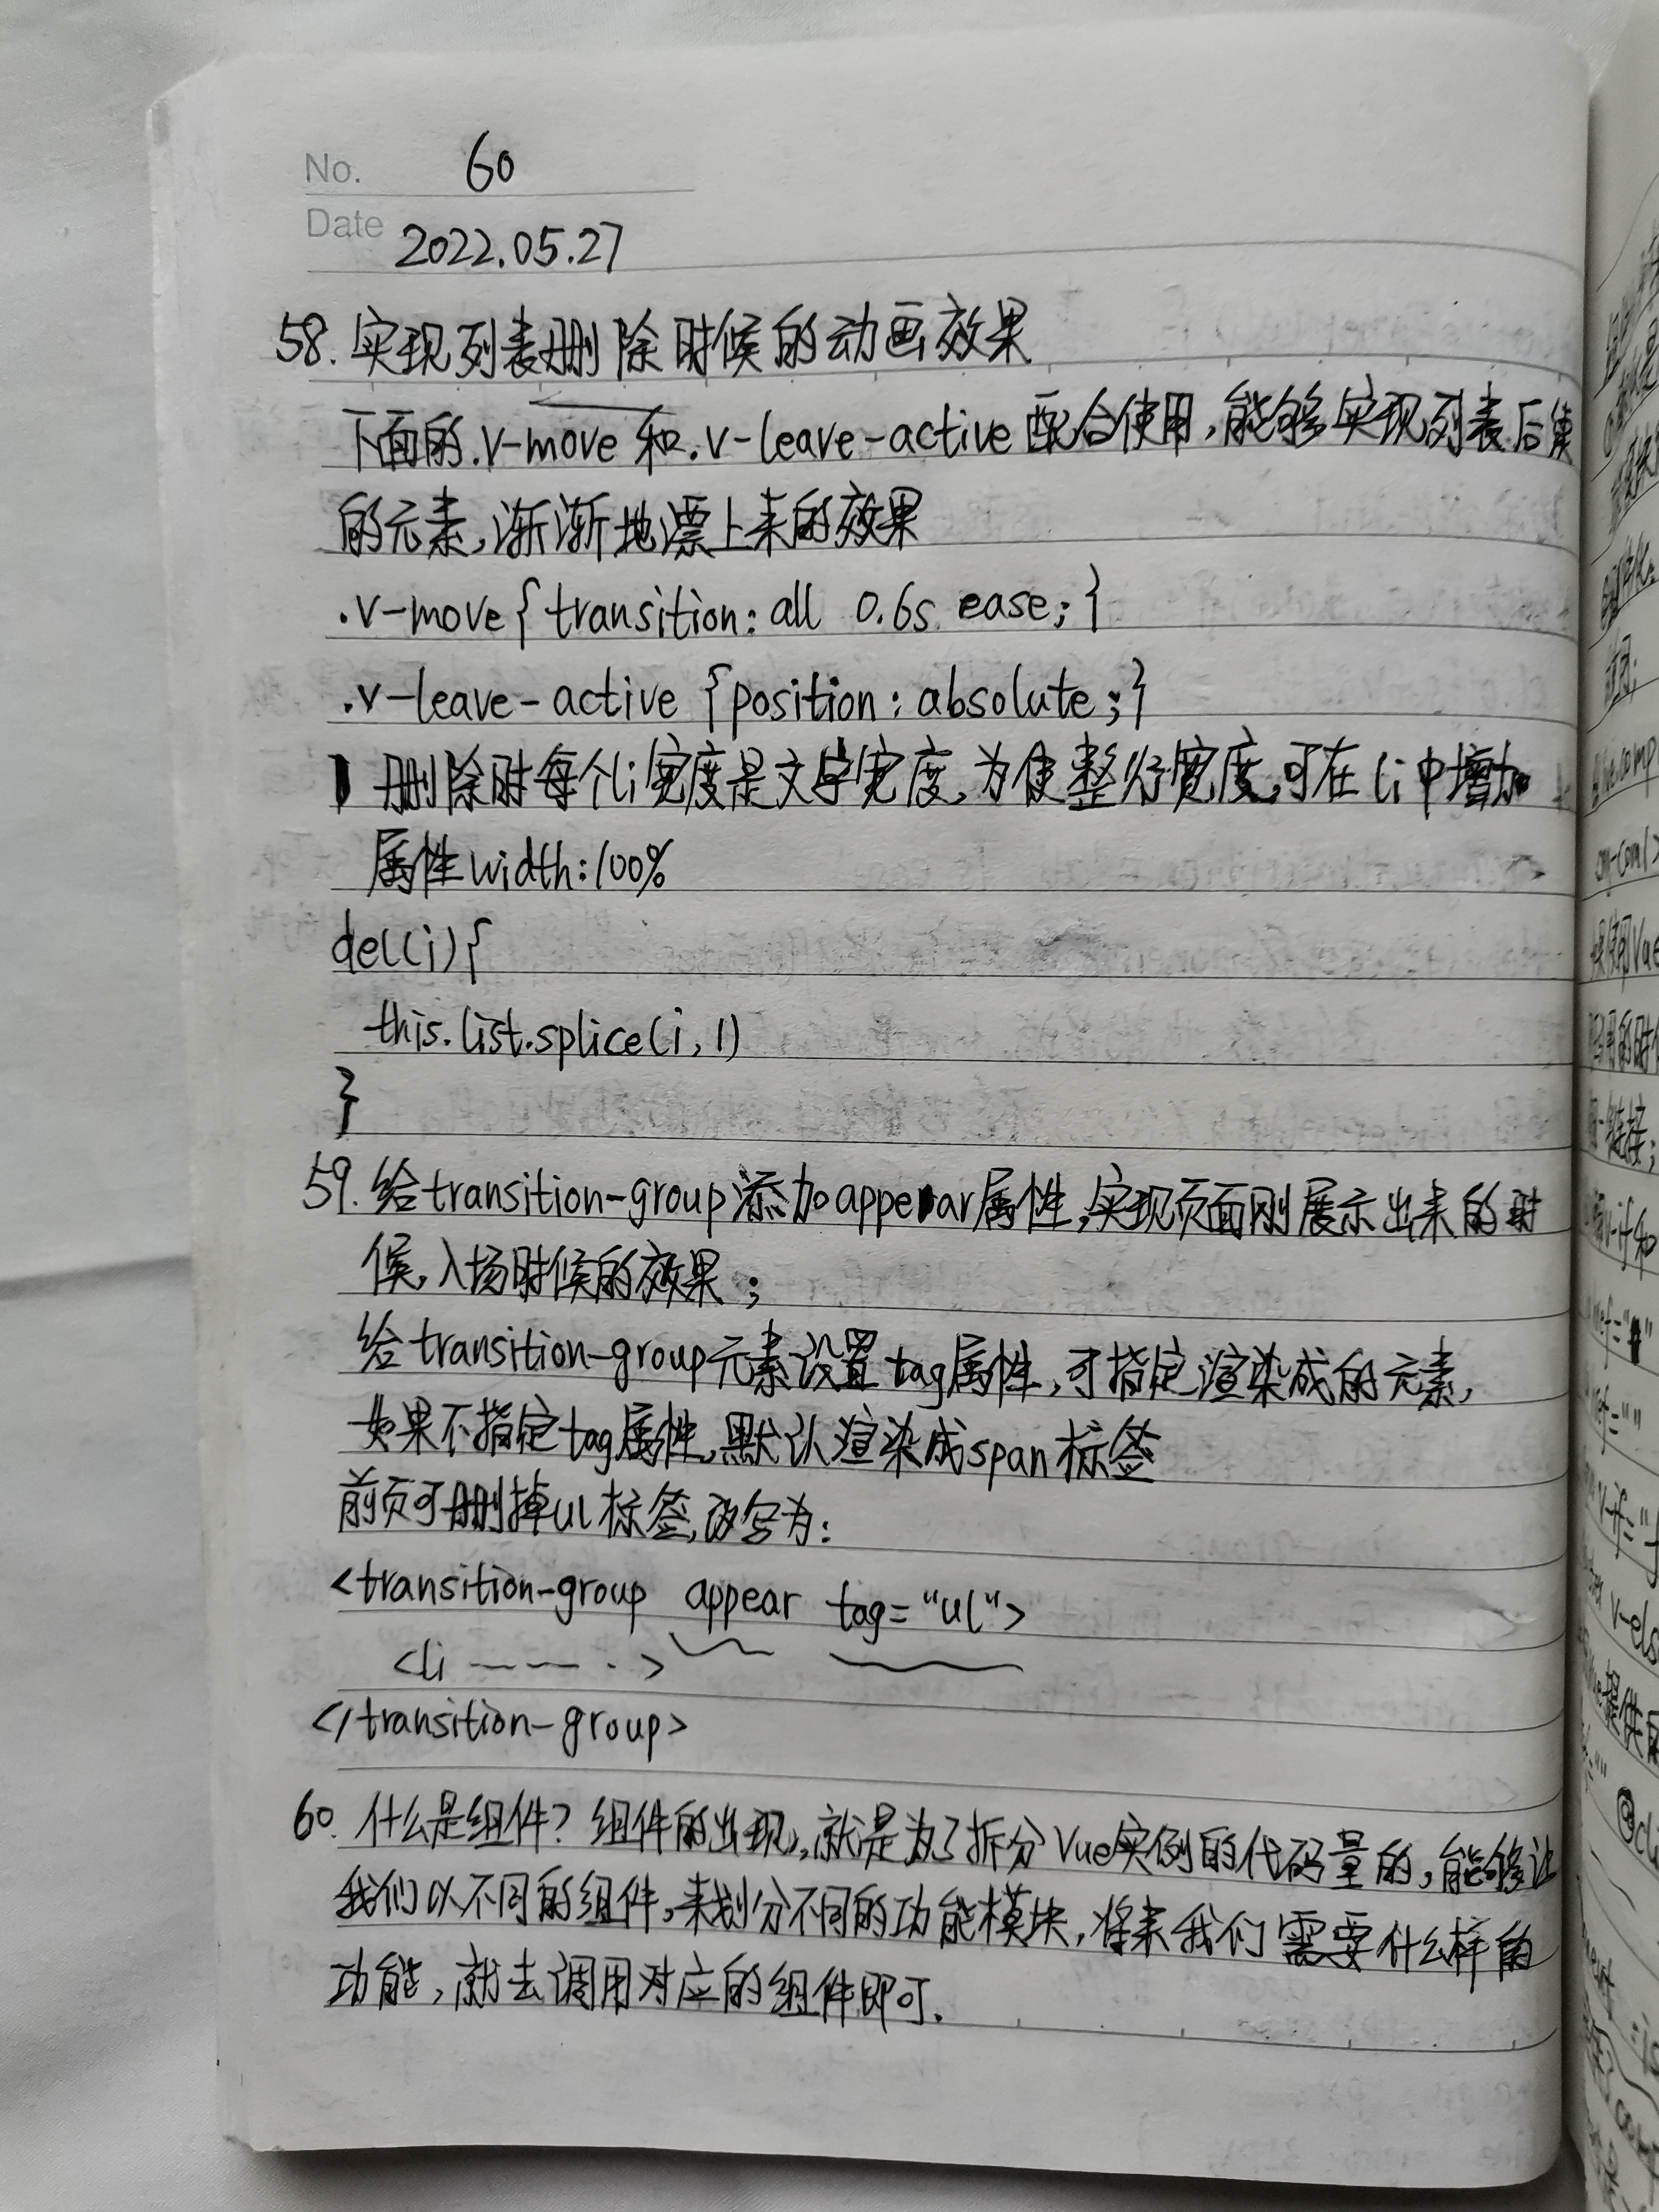 No. 60
Date 2022.05.27
58. 实现列表删除时候的动画效果
下面的.v-move和.v-leave-active配合使用,能够实现列表后续
的元素,渐渐地漂上来的效果
.v-move{transition:all 0.6s ease;}
.v-leave-active {position:absolute;}
删除时每个li宽度是文字宽度,为使整行宽度,可在li中增加
属性width:100%
del(i){
this.list.splice(i,1)
}
59. 给transition-group添加appear属性,实现页面刚展示出来的时
候,入场时候的效果;
给transition-group元素设置tag属性,可指定渲染成的元素,
如果不指定tag属性,默认渲染成span标签
前页可删掉ul标签,改写为:
<transition-group appear tag="ul">
<li ------>
</transition-group>
60. 什么是组件?组件的出现,就是为了拆分Vue实例的代码量的,能够让
我们以不同的组件,来划分不同的功能模块,将来我们需要什么样的
功能,就去调用对应的组件即可.